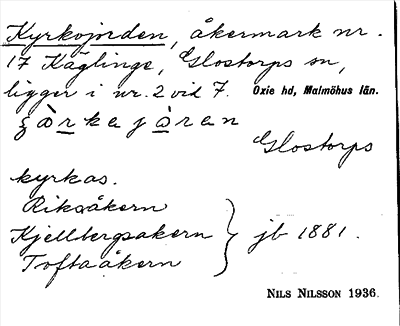 Kyrkojorden, åkermark nr.
17 Käglinge, Glostorps sn,
ligger i nr. 2 vid 7. Oxie hd, Malmöhus län.
Glostorps
kyrkas.
Riksåkern
Kjellbergsakern } jb 1881.
Toftaåkern
NILS NILSSON 1936.